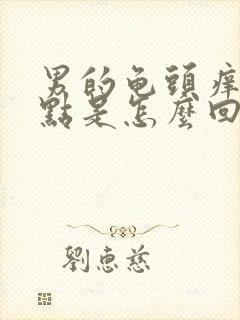 男的龟頭痒
點是怎麼回
劉惠慈